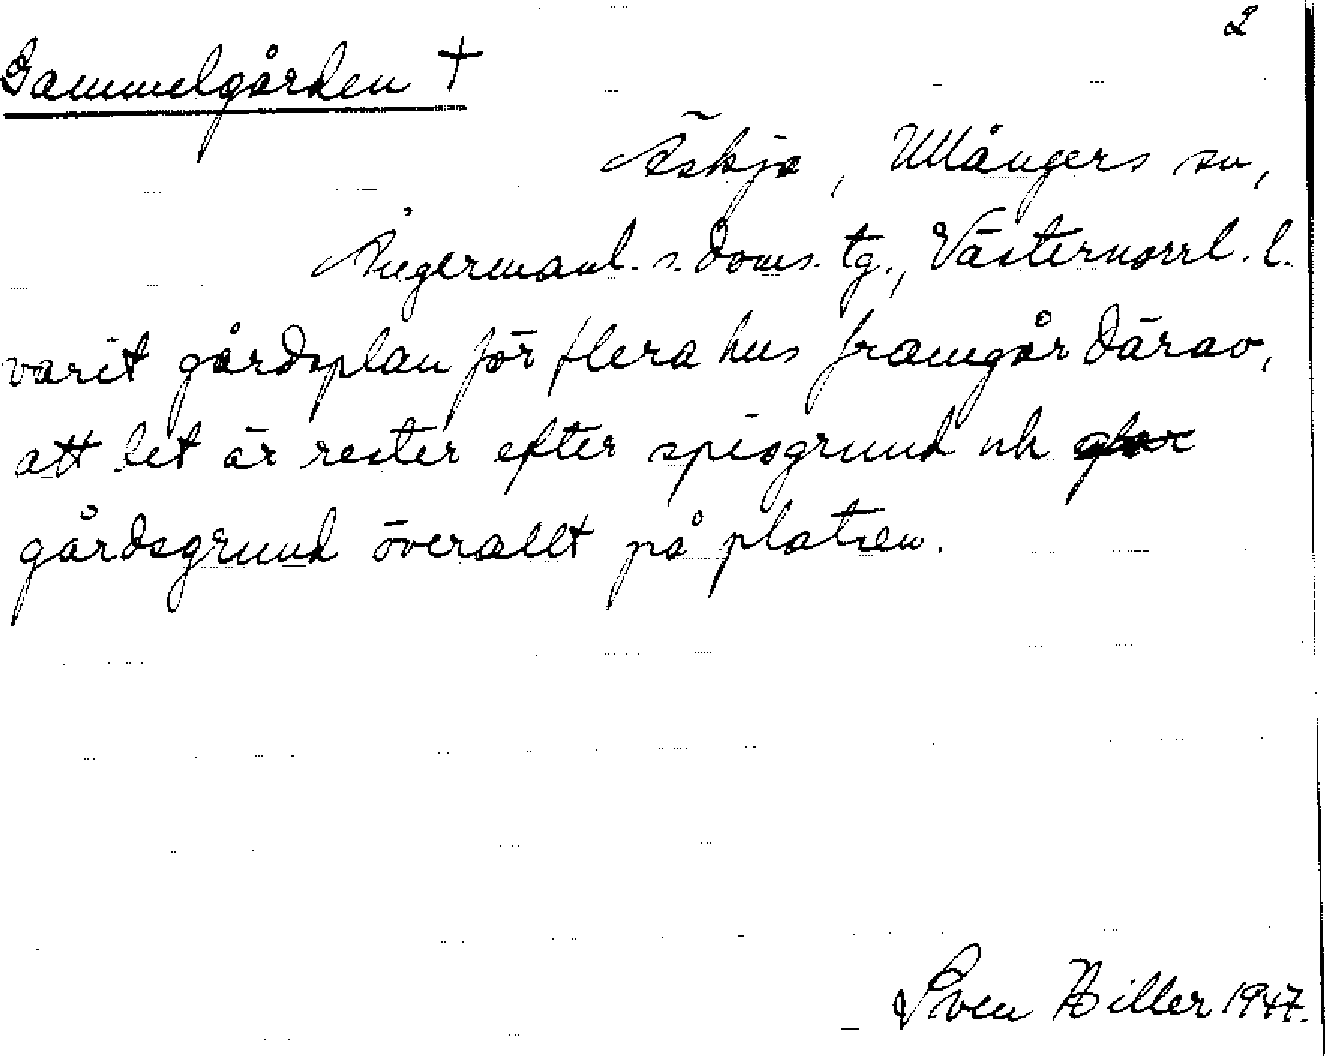 2
Gammelgården †
Äskja, Ullångers sn,
Ångermanl. s. doms. tg., Västernorrl. l.
varit gårdsplan för flera hus framgår därav,
att det är rester efter spisgrund och
gårdsgrund överallt på platsen.
Sven Hiller 1947.